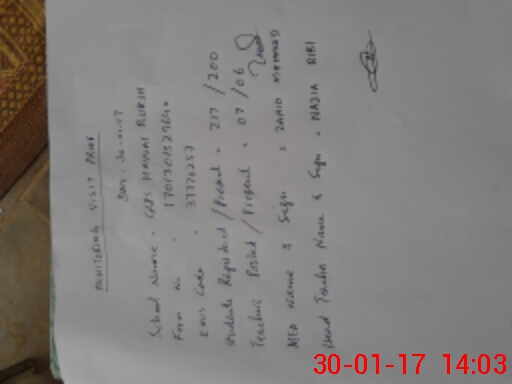 MONITORING VISIT PROF
Date: 30-01-17
School Name = GGPS
Form No =
EMIS Code = 37370257
Students Registered / Present = 217 / 200
Teachers Posted / Present = 07 / 06
MEA Name & Sign = ZAHID MEHMOOD
Head Teacher Name & Sign = NAZIA BIBI
30-01-17 14:03